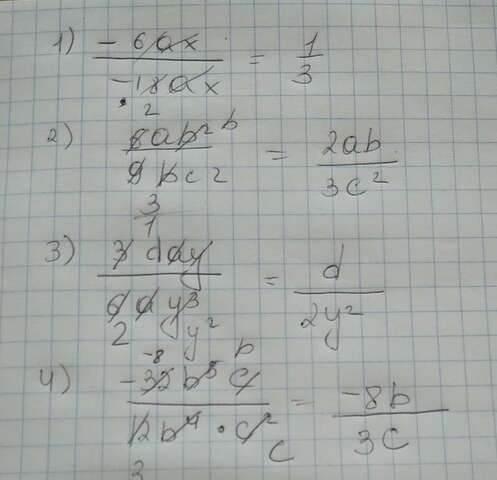 1) -6ax / -18ax = 1/3
2
2) 6ab² b / 9bc² = 2ab / 3c²
3
1
3) 3ddy / 6dy³ = d / 2y²
2 y²
-8 b
4) -32b⁵c / 12b⁴·c² = -8b / 3c
3 c